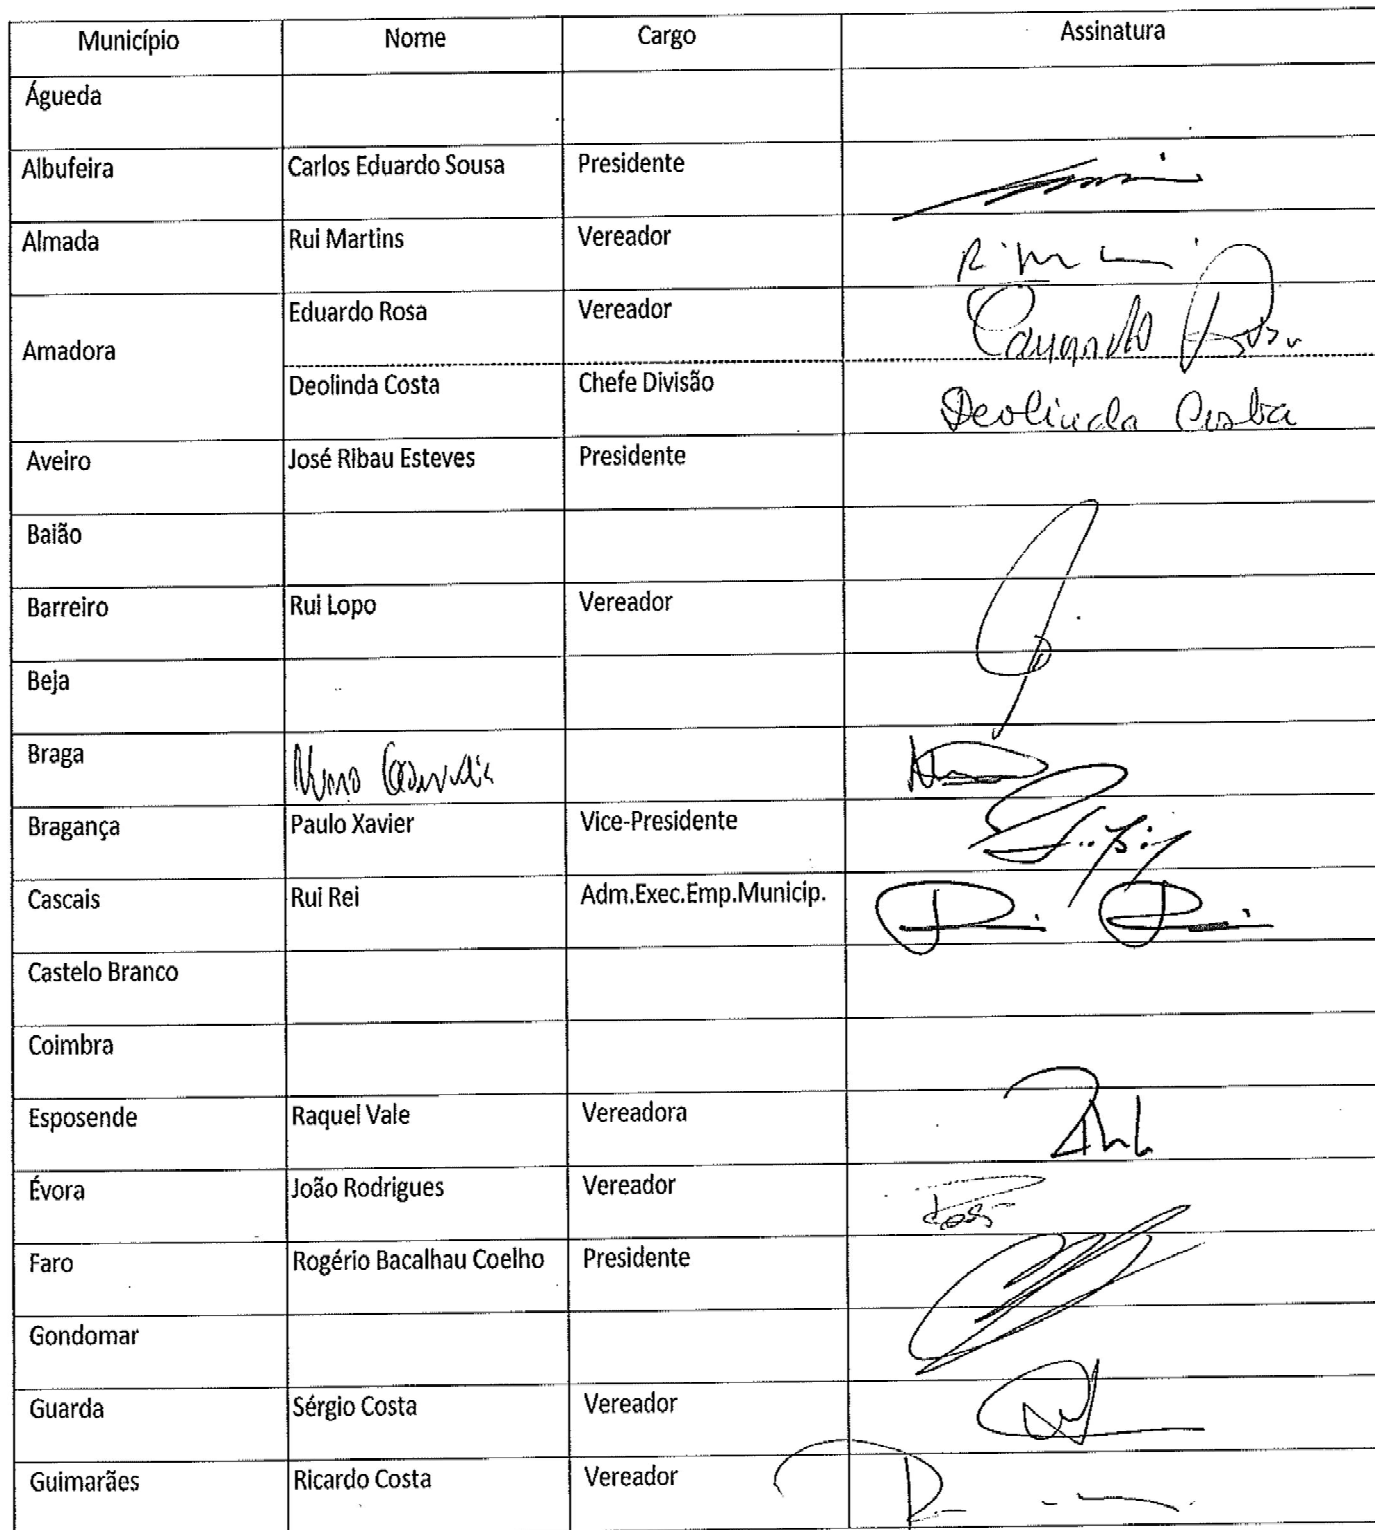 Município Nome Cargo Assinatura
Águeda
Albufeira Carlos Eduardo Sousa Presidente
Almada Rui Martins Vereador
Amadora
Eduardo Rosa Vereador Eduardo Rosa
Deolinda Costa Chefe Divisão Deolinda Costa
Aveiro José Ribau Esteves Presidente
Baião
Barreiro Rui Lopo Vereador
Beja
Braga
Bragança Paulo Xavier Vice-Presidente
Cascais Rui Rei Adm.Exec.Emp.Municip.
Castelo Branco
Coimbra
Esposende Raquel Vale Vereadora
Évora João Rodrigues Vereador
Faro Rogério Bacalhau Coelho Presidente
Gondomar
Guarda Sérgio Costa Vereador
Guimarães Ricardo Costa Vereador